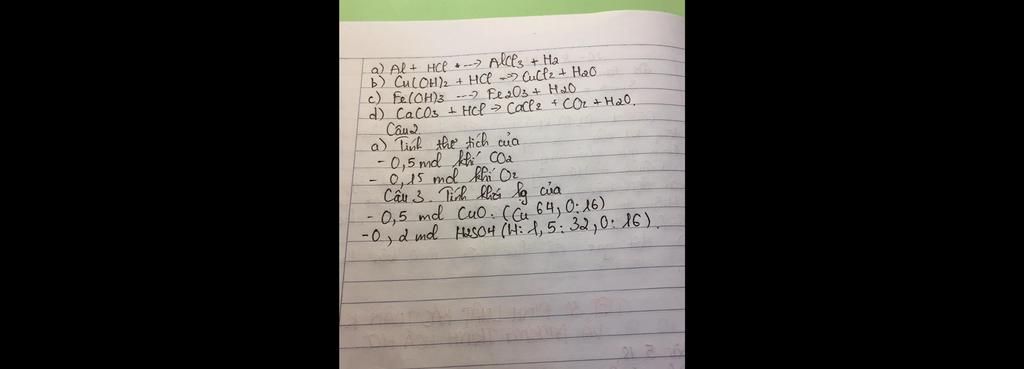 a) Al + HCl ---> AlCl3 + H2
b) Cu(OH)2 + HCl --> CuCl2 + H2O
c) Fe(OH)3 ---> Fe2O3 + H2O
d) CaCO3 + HCl -> CaCl2 + CO2 + H2O.
Câu 2
a) Tính thể tích của
- 0,5 mol khí CO2
- 0,15 mol khí O2
Câu 3. Tính khối lg của
- 0,5 mol CuO. (Cu 64, O: 16)
- 0,2 mol H2SO4 (H: 1, S: 32, O: 16).